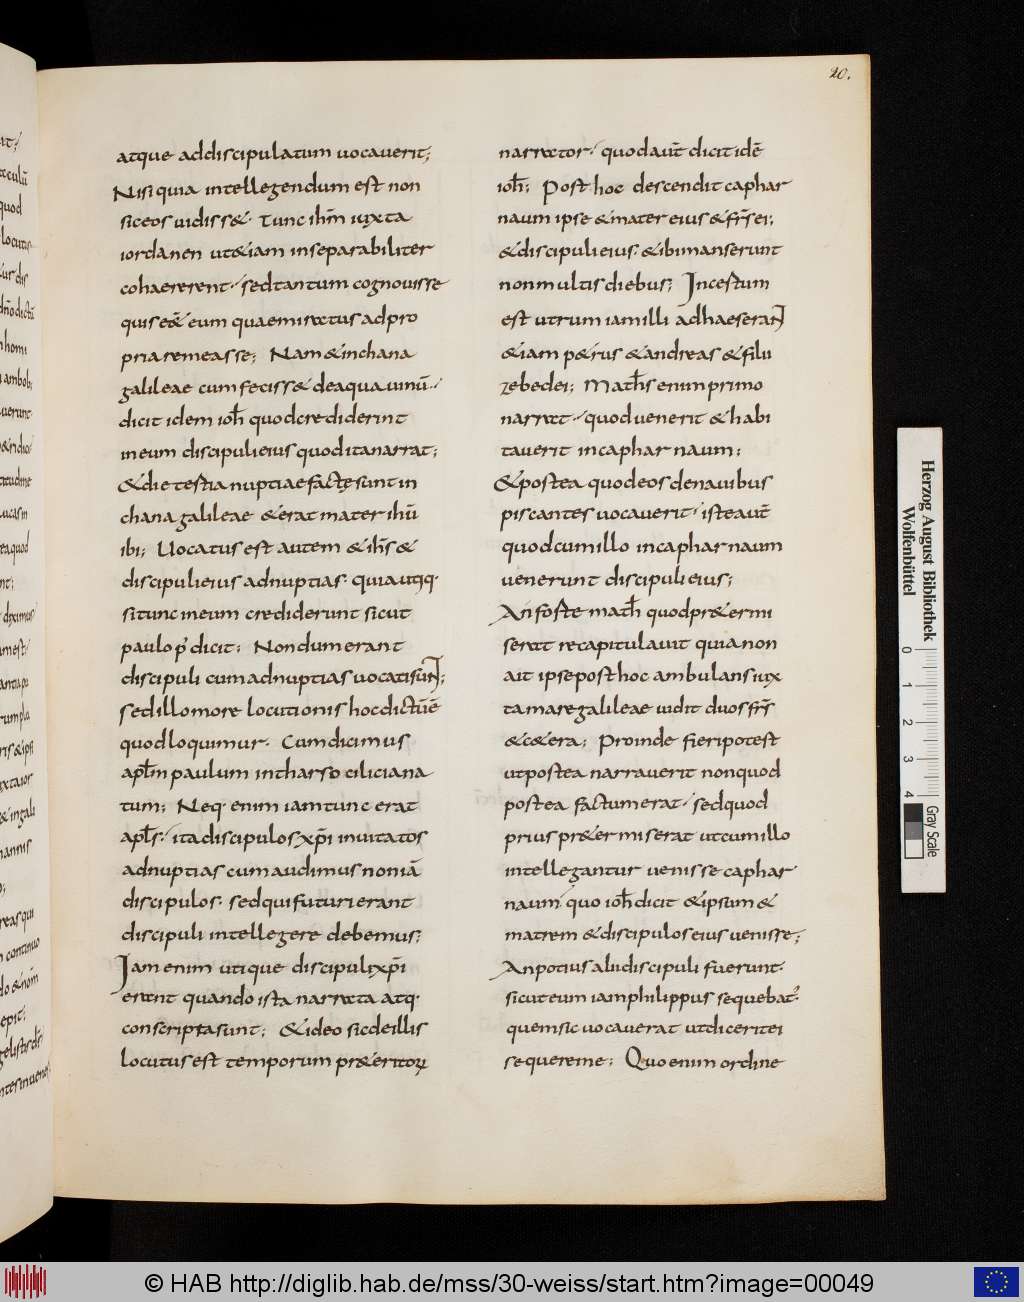 20.
atque addiscipulatum uocauerit;
Nisi quia intellegendum est non
sic eos uidiss&· tunc ihm̄ iuxta
iordanen ut&iam inseparabiliter
cohaererent· sed tantum cognouisse
quis ess& eum quae miratus adpro
pria remeasse; Nam & inchana
galileae cum feciss& deaqua uinū·
dicit idem ioh̄ quod crediderint
ineum discipuli eius quod ita narrat;
& die tertia nuptiae factę sunt in
chana galileae & erat mater ihū
ibi; Uocatus est autem & ih̄s &
discipuli eius ad nuptias· quia utiq·
si tunc ineum crediderunt sicut
paulo p̄ dicit; Nondum erant
discipuli cum ad nuptias uocati sunt;
sed illo more locutionis hoc dictū ē
quo loquimur· Cum dicimus
apl̄m paulum in tharso ciliciana
tum; Neq· enim iam tunc erat
apl̄s· ita discipulos xp̄i inuitatos
ad nuptias cum audimus non iā
discipulos· sed qui futuri erant
discipuli intellegere debemus;
Iam enim utique discipuli xp̄i
erant quando ista narrata atq·
conscripta sunt; & ideo sic de illis
locutus est temporum pr&eritorꝝ
narrator· quod aut̄ dicit idē
ioh̄; Post hoc descendit caphar
naum ipse & mater eius & fr̄s ei;
& discipuli eius· & ibi manserunt
non multis diebus; Incertum
est utrum iam illi adhaeserant
&iam p&rus & andreas & filii
zebedei; Math̄s enim primo
narrat· quod uenerit & habi
tauerit in capharnaum;
& postea quod eos de nauibus
piscantes uocauerit· iste aut̄
quod cum illo in capharnaum
uenerunt discipuli eius;
An forte math̄ quod pr&ermi
serat recapitulauit quia non
ait ipse post hoc ambulans iux
ta mare galileae uidit duos fr̄s
& c&era; Proinde fieri potest
ut postea narrauerit non quod
postea factum erat· sed quod
prius pr&ermiserat ut cum illo
intellegantur uenisse caphar
naum quo ioh̄ dicit & ipsum &
matrem & discipulos eius uenisse;
An potius alii discipuli fuerunt·
sicut eum iam philippus sequebat̄·
quem sic uocauerat ut diceret ei
sequere me; Quo enim ordine
Herzog August Bibliothek
Wolfenbüttel
0 1 2 3 4
Gray Scale
© HAB http://diglib.hab.de/mss/30-weiss/start.htm?image=00049